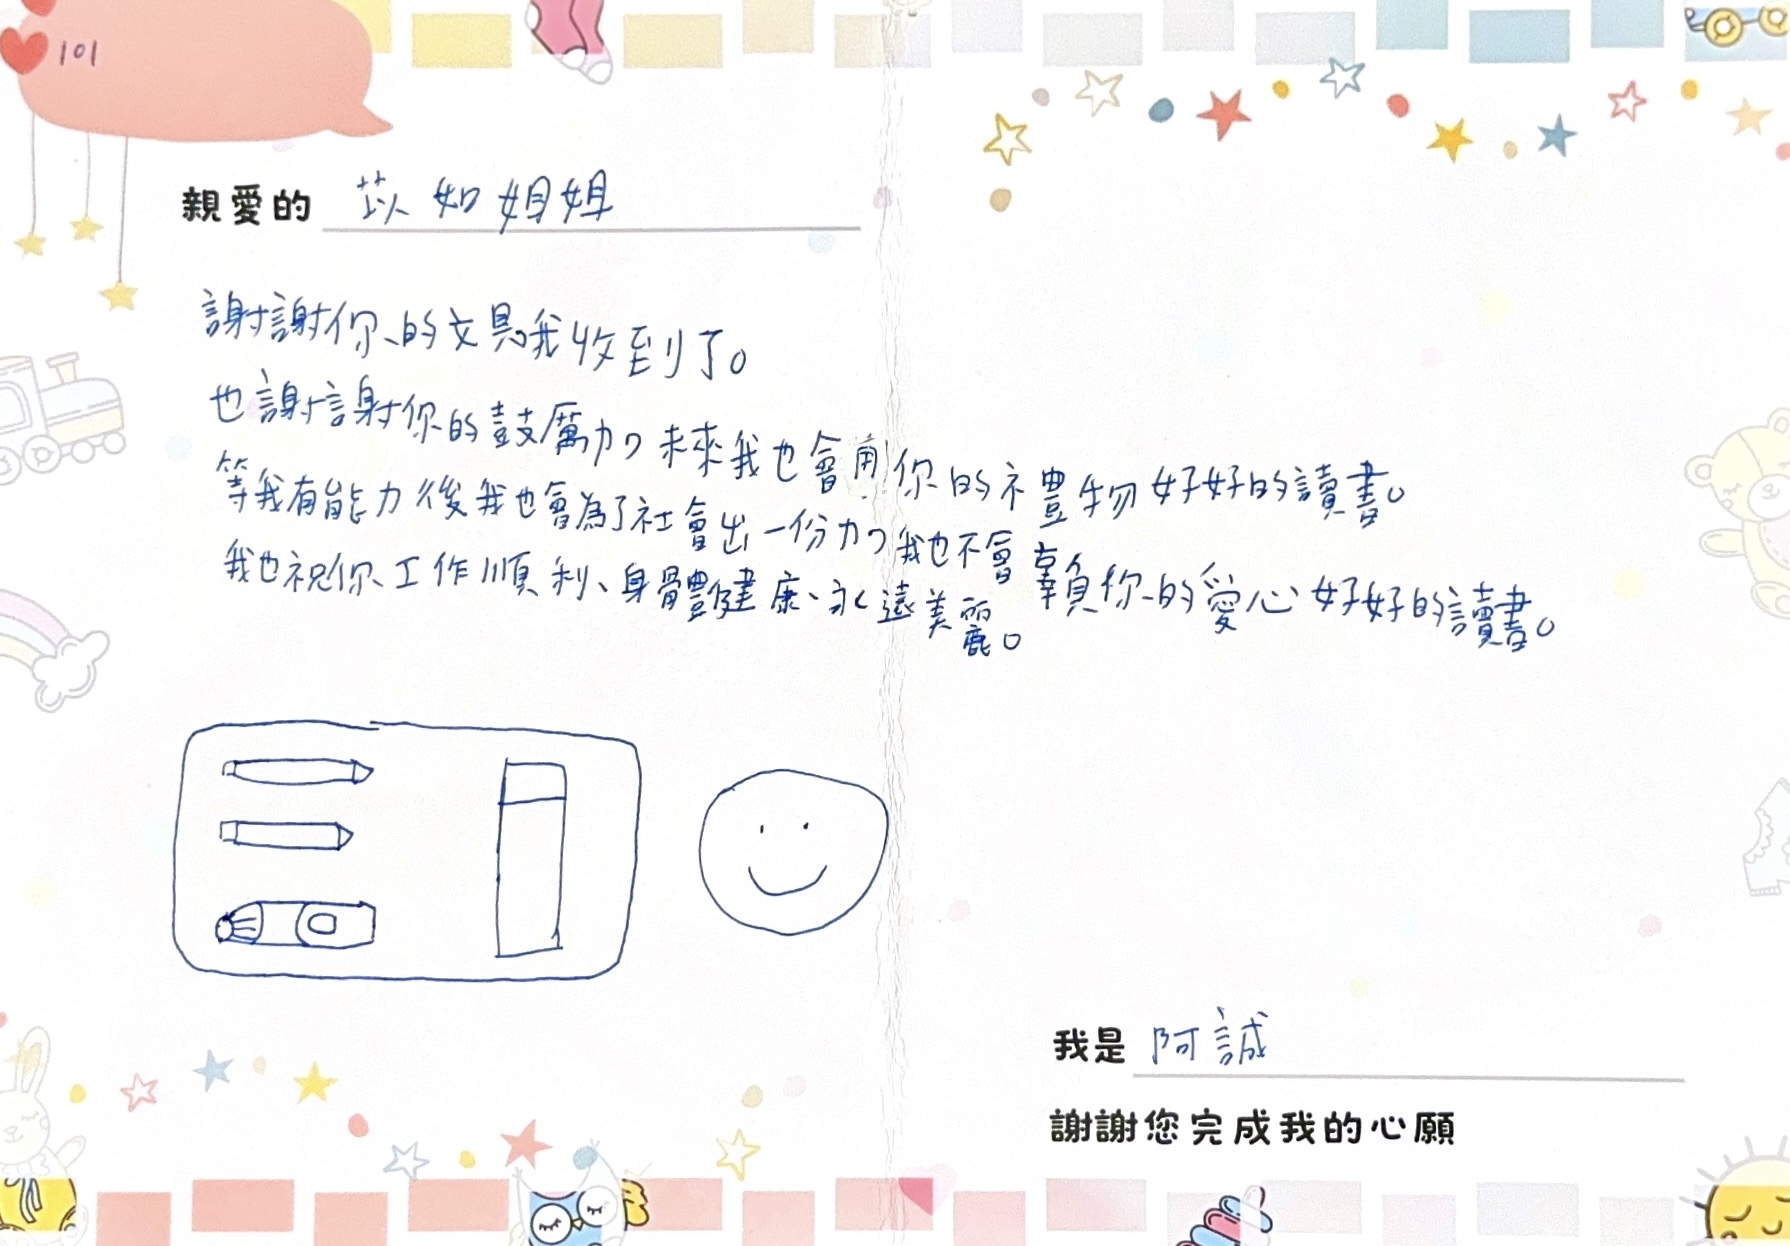 101
親愛的 苡如姐姐
謝謝你的文具我收到了。
也謝謝你的鼓厲力,未來我也會用你的禮物好好的讀書。
等我有能力後我也會為了社會出一份力,我也不會辜負你的愛心好好的讀書。
我也祝你工作順利、身體健康、永遠美麗。
我是 阿誠
謝謝您完成我的心願